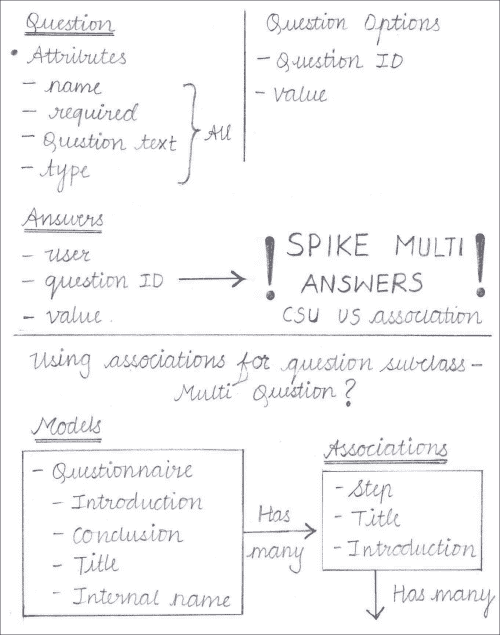 Question
• Attributes
- name
- required
- Question text
- type
All
Question Options
- Question ID
- value
Answers
- user
- question ID
- value
! SPIKE MULTI !
ANSWERS
CSU US association
Using associations for question subclass -
Multi Question?
Models
- Questionnaire
- Introduction
- Conclusion
- Title
- Internal name
Has
many
Associations
- Step
- Title
- Introduction
Has many